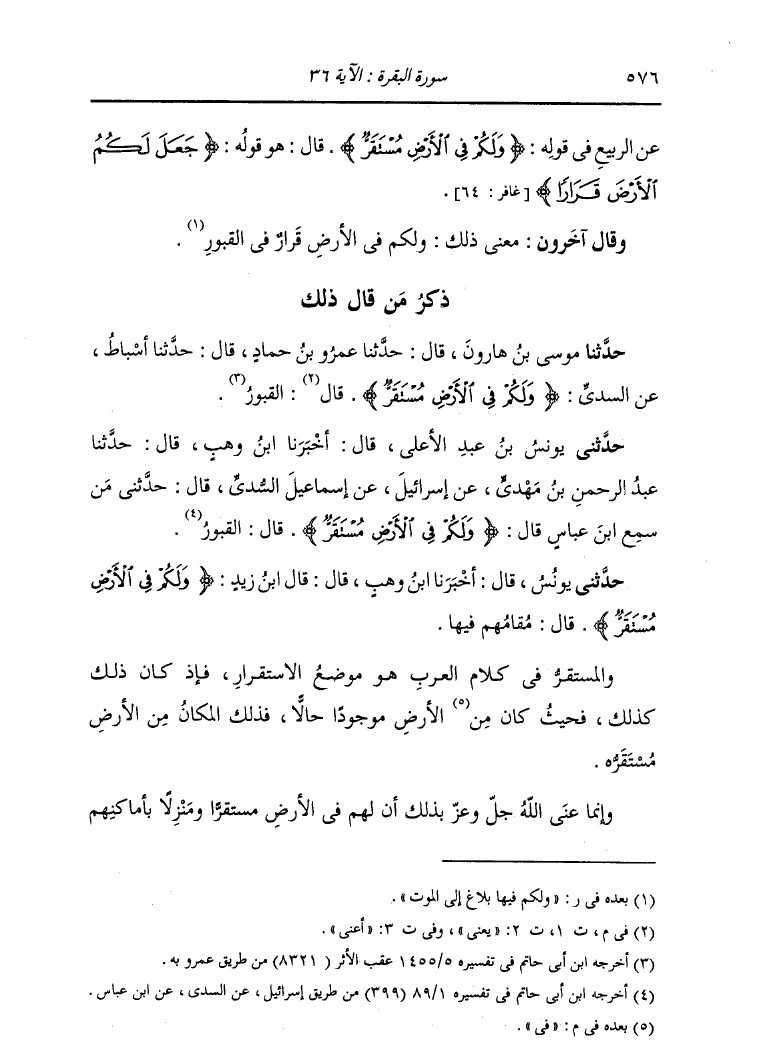 ٥٧٦ سورة البقرة : الآية ٣٦
عن الربيعِ فى قولِه : ﴿ وَلَكُمْ فِي ٱلْأَرْضِ مُسْتَقَرٌّ ﴾ . قال : هو قولُه : ﴿ جَعَلَ لَكُمُ
ٱلْأَرْضَ قَرَارًا ﴾ [غافر : ٦٤] .
وقال آخَرون : معنى ذلك : ولكم فى الأرضِ قَرارٌ فى القبورِ(١) .
ذكرُ مَن قال ذلك
حدَّثنا موسى بنُ هارونَ ، قال : حدَّثنا عمرُو بنُ حمادٍ ، قال : حدَّثنا أسْباطُ ،
عن السدىِّ : ﴿ وَلَكُمْ فِي ٱلْأَرْضِ مُسْتَقَرٌّ ﴾ . قال(٢) : القبورُ(٣) .
حدَّثنى يونسُ بنُ عبدِ الأعلى ، قال : أخْبَرَنا ابنُ وهبٍ ، قال : حدَّثنا
عبدُ الرحمنِ بنُ مَهْدىٍّ ، عن إسرائيلَ ، عن إسماعيلَ السُّدىِّ ، قال : حدَّثنى مَن
سمِع ابنَ عباسٍ قال : ﴿ وَلَكُمْ فِي ٱلْأَرْضِ مُسْتَقَرٌّ ﴾ . قال : القبورُ(٤) .
حدَّثنى يونُسُ ، قال : أخْبَرَنا ابنُ وهبٍ ، قال : قال ابنُ زيدٍ : ﴿ وَلَكُمْ فِي ٱلْأَرْضِ
مُسْتَقَرٌّ ﴾ . قال : مُقامُهم فيها .
والمستقرُّ فى كلامِ العربِ هو موضعُ الاستقرارِ ، فإذ كان ذلك
كذلك ، فحيثُ كان مِن(٥) الأرضِ موجودًا حالًّا ، فذلك المكانُ مِن الأرضِ
مُسْتَقَرُّه .
وإنما عنَى اللهُ جلّ وعزّ بذلك أن لهم فى الأرضِ مستقرًّا ومَنْزِلًا بأماكنِهم
(١) بعده فى ر : « ولكم فيها بلاغ إلى الموت » .
(٢) فى م ، ت ١، ت ٢: « يعنى » ، وفى ت ٣: « أعنى » .
(٣) أخرجه ابن أبى حاتم فى تفسيره ١٤٥٥/٥ عقب الأثر ( ٨٣٢١) من طريق عمرو به .
(٤) أخرجه ابن أبى حاتم فى تفسيره ٨٩/١ (٣٩٩) من طريق إسرائيل ، عن السدى ، عن ابن عباس .
(٥) بعده فى م : « فى » .